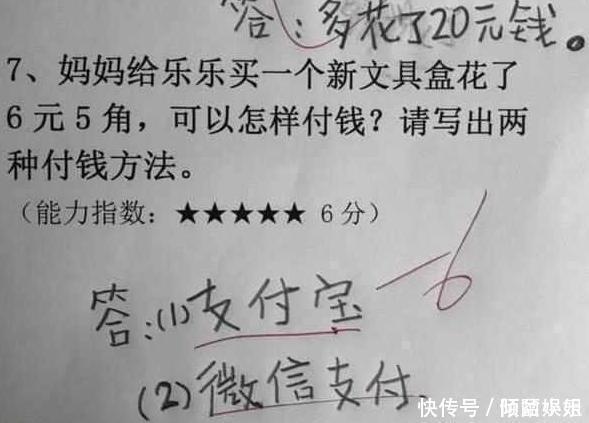 答：多花了20元钱。
7、妈妈给乐乐买一个新文具盒花了
6元5角，可以怎样付钱？请写出两
种付钱方法。
（能力指数：★★★★★ 6分）
-6
答：(1)支付宝
(2)微信支付.
快传号／倾蓝娱姐